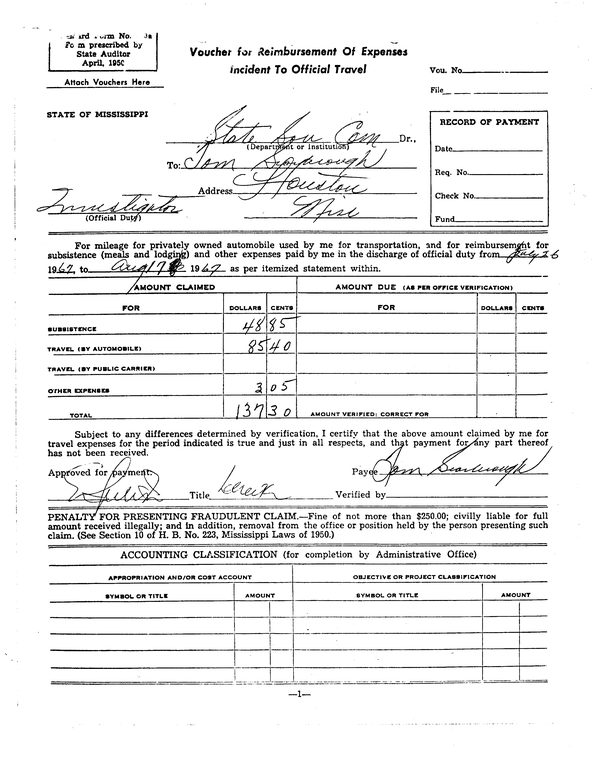 Form No.
Form prescribed by
State Auditor
April, 1950
Attach Vouchers Here
Voucher for Reimbursement Of Expenses
Incident To Official Travel
Vou. No.
File
STATE OF MISSISSIPPI
State Sov Com Dr.,
(Department or institution)
To: Tom Scarbrough
Address Houston
Miss
Investigator
(Official Duty)
RECORD OF PAYMENT
Date
Req. No.
Check No.
Fund
For mileage for privately owned automobile used by me for transportation, and for reimbursement for
subsistence (meals and lodging) and other expenses paid by me in the discharge of official duty from July 26
1962, to Aug 17 1962 as per itemized statement within.
AMOUNT CLAIMED AMOUNT DUE (AS PER OFFICE VERIFICATION)
FOR DOLLARS CENTS FOR DOLLARS CENTS
SUBSISTENCE 48 85
TRAVEL (BY AUTOMOBILE) 85 40
TRAVEL (BY PUBLIC CARRIER)
OTHER EXPENSES 3 05
TOTAL 137 30 AMOUNT VERIFIED: CORRECT FOR
Subject to any differences determined by verification, I certify that the above amount claimed by me for
travel expenses for the period indicated is true and just in all respects, and that payment for any part thereof
has not been received.
Approved for payment: Payee Tom Scarbrough
Title Verified by
PENALTY FOR FRAUDULENT CLAIM.—Fine of not more than $250.00; civilly liable for full
amount received illegally; and in addition, removal from the office or position held by the person presenting such
claim. (See Section 10 of H. B. No. 223, Mississippi Laws of 1950.)
ACCOUNTING CLASSIFICATION (for completion by Administrative Office)
APPROPRIATION AND/OR COST ACCOUNT OBJECTIVE OR PROJECT CLASSIFICATION
SYMBOL OR TITLE AMOUNT SYMBOL OR TITLE AMOUNT
—1—